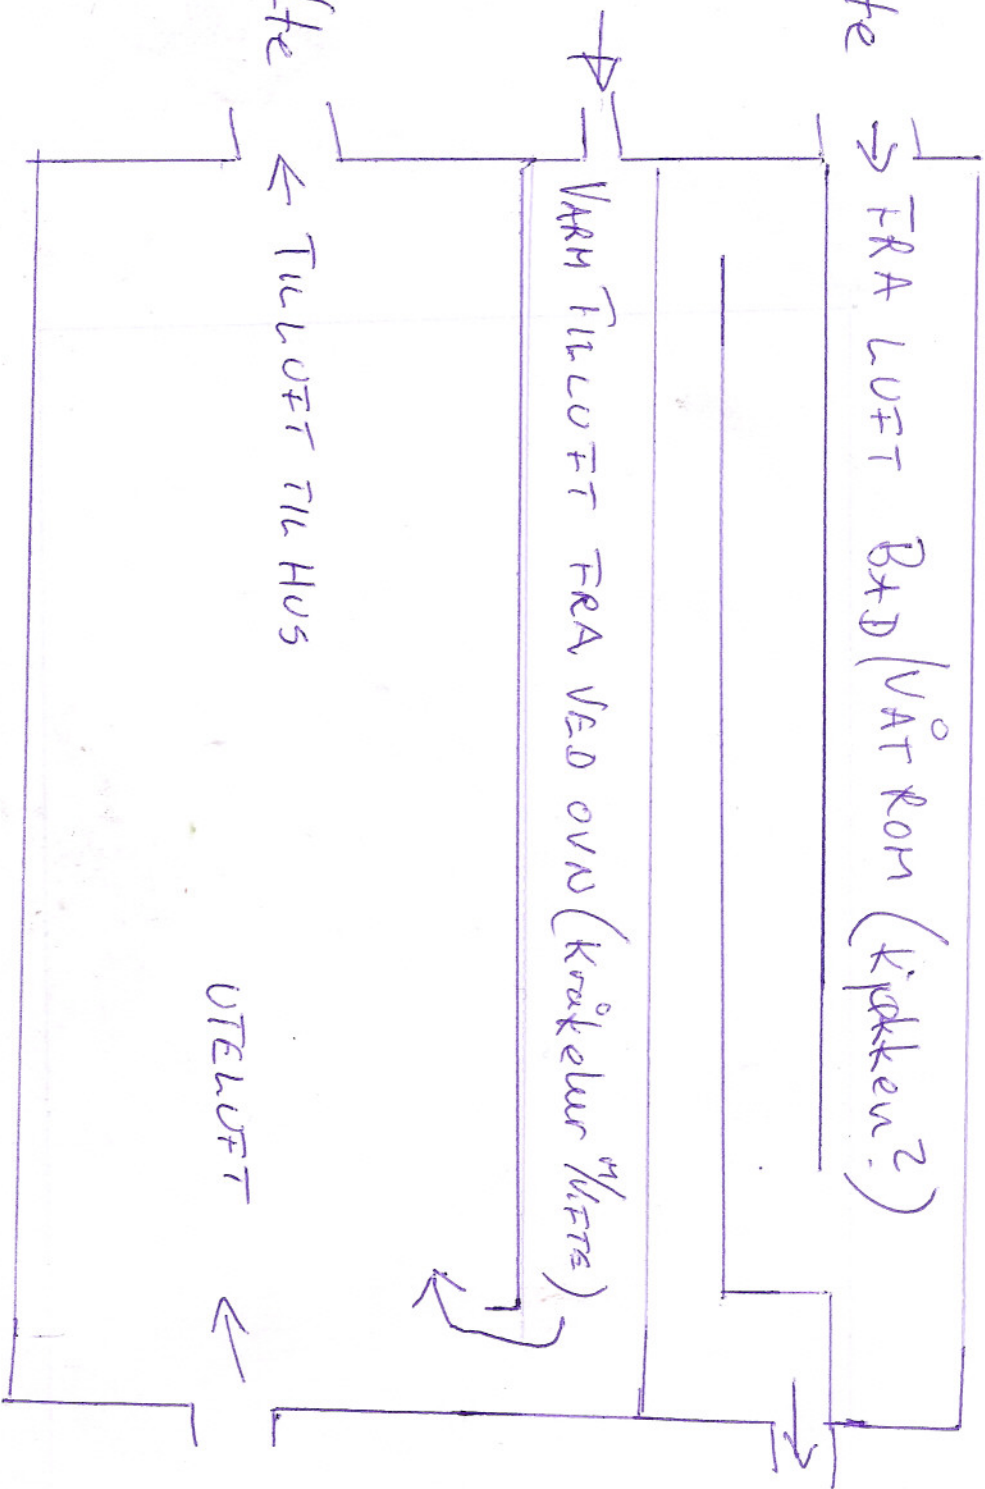 fte
→ FRA LUFT BAD/VÅTROM (Kjøkken?)
VARM TILLUFT FRA VEDOVN (Kråkelur M/VIFTE)
← TILLUFT TIL HUS
UTELUFT ←
fte